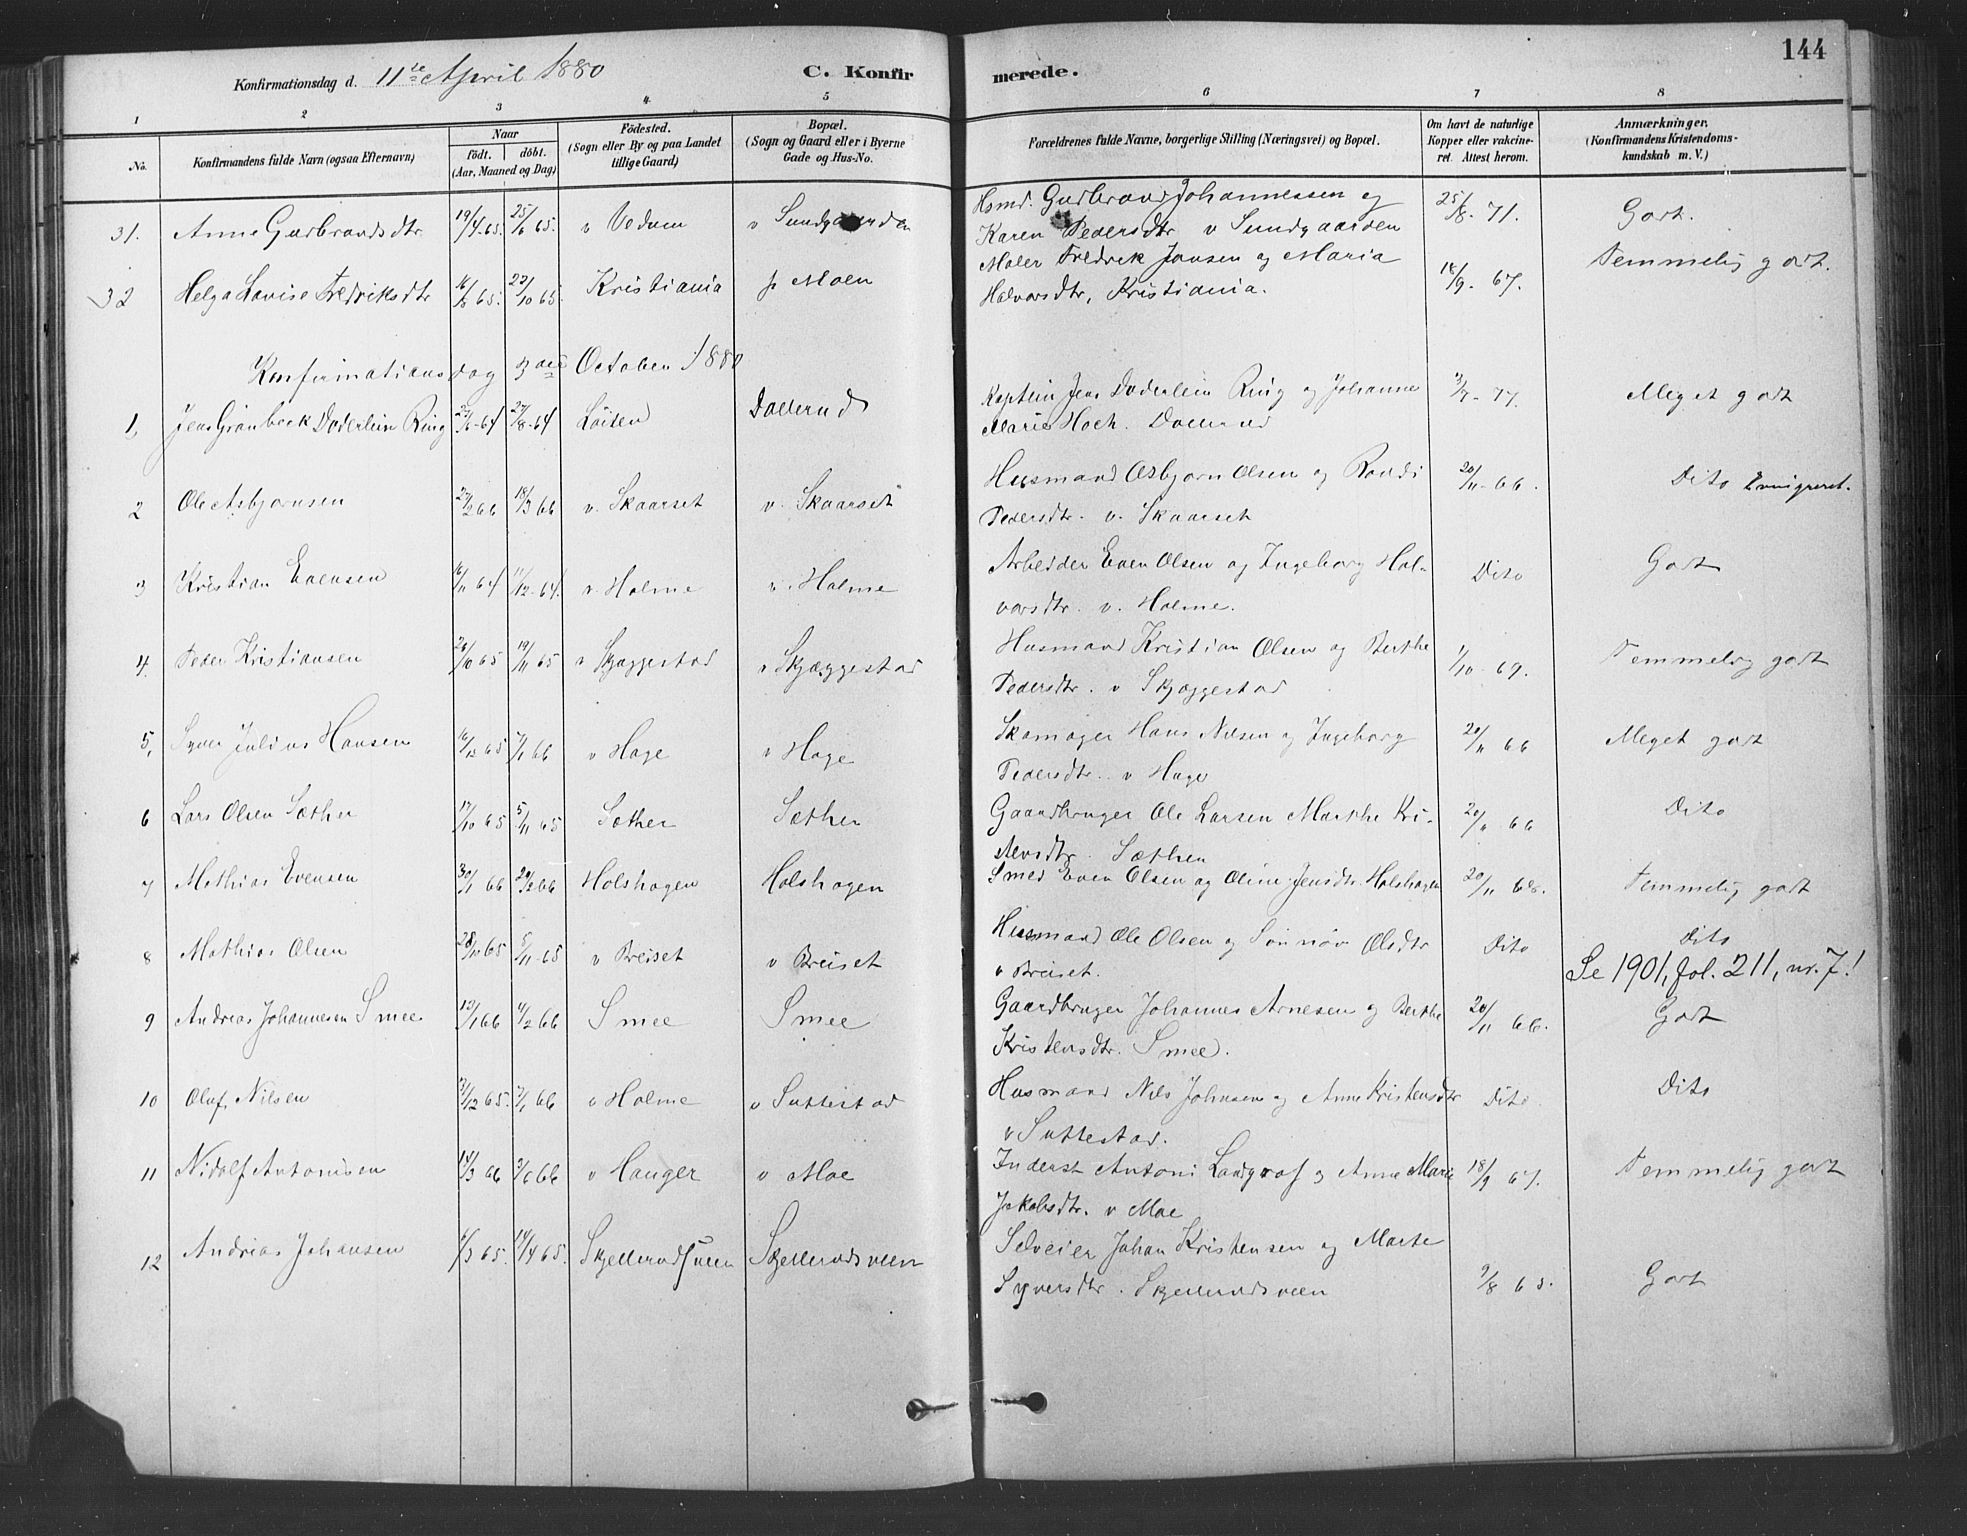 144
Konfirmationsdag d. 11te April 1880 C. Konfirmerede.
1 2 3 4 5 6 7 8
No. Konfirmandens fulde Navn (ogsaa Efternavn) Naar födt. döbt. (Aar, Maaned og Dag) Födested. (Sogn eller By og paa Landet tillige Gaard) Bopæl. (Sogn og Gaard eller i Byerne Gade og Hus-No.) Forældrenes fulde Navne, borgerlige Stilling (Næringsvei) og Bopæl. Om havt de naturlige Kopper eller vakcineret. Attest herom. Anmærkninger. (Konfirmandens Kristendomskundskab m. V.)
31. Anne Gudbrandsdtr 19/4-65 25/6 65. v Vedum v Sundgaarden Hsmd. Gudbrand Johannessen og 25/8-71. Godt.
Karen Pedersdtr v Sundgaarden
32 Helga Lovise Fredriksdtr 16/8 65. 22/10 65. Kristiania p Moen Maler Fredrik Jansen og Maria 18/9-67. Temmelig godt.
Halvorsdtr, Kristiania.
Konfirmationsdag 3die October 1880
1, Jens Grönbeck Döderlein Ring 27/8-64 Löiten Dollerud Kaptein Jens Döderlein Ring og Johanne Meget godt
Marie Hoch. Dollerud
2 Ole Asbjørnsen 18/3 66 v. Skaarset v. Skaarset Husmand Asbjørn Olsen og Randi 20/11-66. Dito Emigreret.
Pedersdtr. v. Skaarset
3 Kristian Evensen 16/11 64 11/12-64. v Holme v. Holme Arbeider Even Olsen og Ingeborg Hal- Dito Godt
vorsdtr. v. Holme.
4. Peder Kristiansen 26/10 65 19/11 65 v Skjæggestad v Skjæggestad Husmand Kristian Olsen og Berthe 1/10-69. Temmelig godt
Pedersdtr. v Skjæggestad
5, Syver Julius Hansen 16/12 65 7/1 66 v Hage v Hage Skomager Hans Nilsen og Ingeborg 20/11 66 Meget godt
Pedersdtr. v Hage
6 Lars Olsen Sæther 17/10 65 5/11 65 Sæther Sæther Gaardbruger Ole Larsen Marthe Kri- 20/11 66 Dito
stensdtr. Sæthen
7 Mathias Evensen 30/1 66 Holshagen Holshagen Smed Even Olsen og Oline Jensdtr. Holshagen 20/11 68. Temmelig godt
8 Mathias Olsen 28/10 65 5/11-65 v Breiset v Breiset Husmand Ole Olsen og Sönnöv Olsdtr Dito Dito
v Breiset. Se 1901, fol. 211, nr. 7!
9 Andreas Johannesen Smee 13/1 66 4/2 66 Smee Smee Gaardbruger Johannes Arnesen og Berthe 20/11 66. Godt
Kristensdtr. Smee.
10 Oluf Nilsen 7/1 66 v Holme v Suttestad Husmand Nils Johnsen og Anne Kristensdtr Dito Dito
v Suttestad.
11 Nidolf Antonisen 14/3 66 3/6 66 v Hanger v Moe Inderst Antoni Landgraf og Anne Marie 18/9 67. Temmelig godt
Jakobsdtr. v Moe
12 Andreas Johansen 6/3 65. 14/4 65. Skjellerudsveen Skjellerudsveen Selveier Johan Kristensen og Marte
Syversdtr. Skjellerudsveen Godt